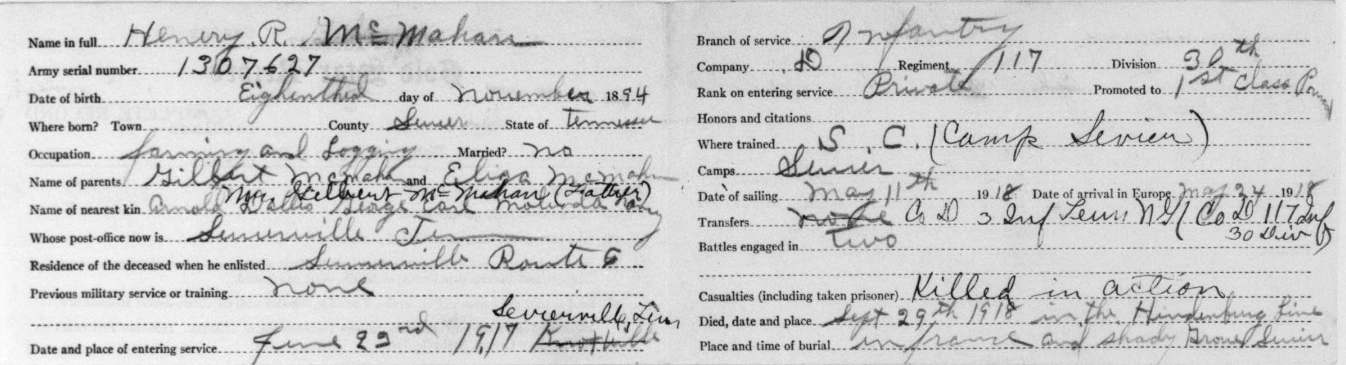 Name in full Henery. R. McMahan
Army serial number 1307627
Date of birth Eightenthd day of november 1894
Where born? Town County Sevier State of Tennessee
Occupation farming and Logging Married? no
Name of parents Gilbert McMahan and Eliza McMahan
Mr. Gilbert McMahan (Father)
Name of nearest kin Arnold Dallas George Earl
Whose post-office now is Sevierville Ten
Residence of the deceased when he enlisted Sevierville Route 6
Previous military service or training none
Sevierville, Tenn,
Date and place of entering service June 22rd 1917 Knoxville
Branch of service Infantry
Company D Regiment 117 Division 30th
Rank on entering service Private Promoted to 1st Class
Honors and citations
Where trained S. C. (Camp Sevier)
Camps Sevier
Date of sailing May 11th 1918 Date of arrival in Europe May 24 1918
Transfers none Co D 3 Inf Tenn NG (Co D 117 Inf
30 Div)
Battles engaged in two
Casualties (including taken prisoner) Killed in action
Died, date and place Sept 29th 1918 in the Hindenburg Line
Place and time of burial in france and shady Grove Sevier